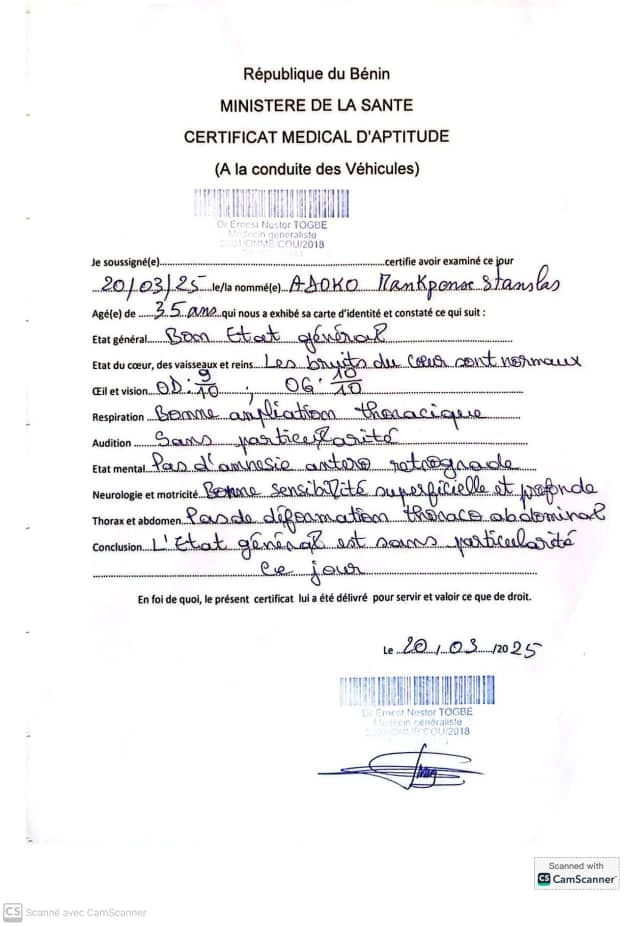 République du Bénin
MINISTERE DE LA SANTE
CERTIFICAT MEDICAL D'APTITUDE
(A la conduite des Véhicules)
Dr Ernest Nestor TOGBE
Médecin généraliste
ONMB COU/2018
Je soussigné(e)..........certifie avoir examiné ce jour
20/03/25 le/la nommé(e) ADOKO Mankponse Stanslas
Agé(e) de 35 ans qui nous a exhibé sa carte d'identité et constaté ce qui suit :
Etat général Bon Etat général
Etat du cœur, des vaisseaux et reins Les bruits du cœur sont normaux
Œil et vision OD: 9/10 ; OG: 10/10
Respiration Bonne ampliation thoracique
Audition Sans particularité
Etat mental Pas d'amnesie antero retrograde
Neurologie et motricité Bonne sensibilité superficielle et profonde
Thorax et abdomen Pas de déformation thoraco abdominal
Conclusion L'Etat général est sans particularité
ce jour
En foi de quoi, le présent certificat lui a été délivré pour servir et valoir ce que de droit.
Le 20/03/2025
Dr Ernest Nestor TOGBE
Médecin généraliste
ONMB COU/2018
Scanned with
CS CamScanner
CS Scanné avec CamScanner